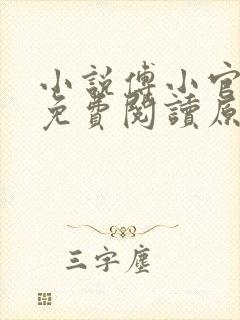 小說傅小官
免費閱讀原
三字塵